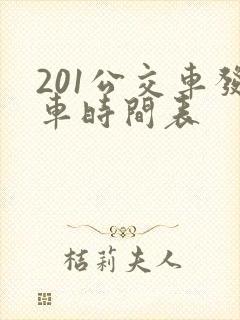 201公交車發
車時間表
桔莉夫人